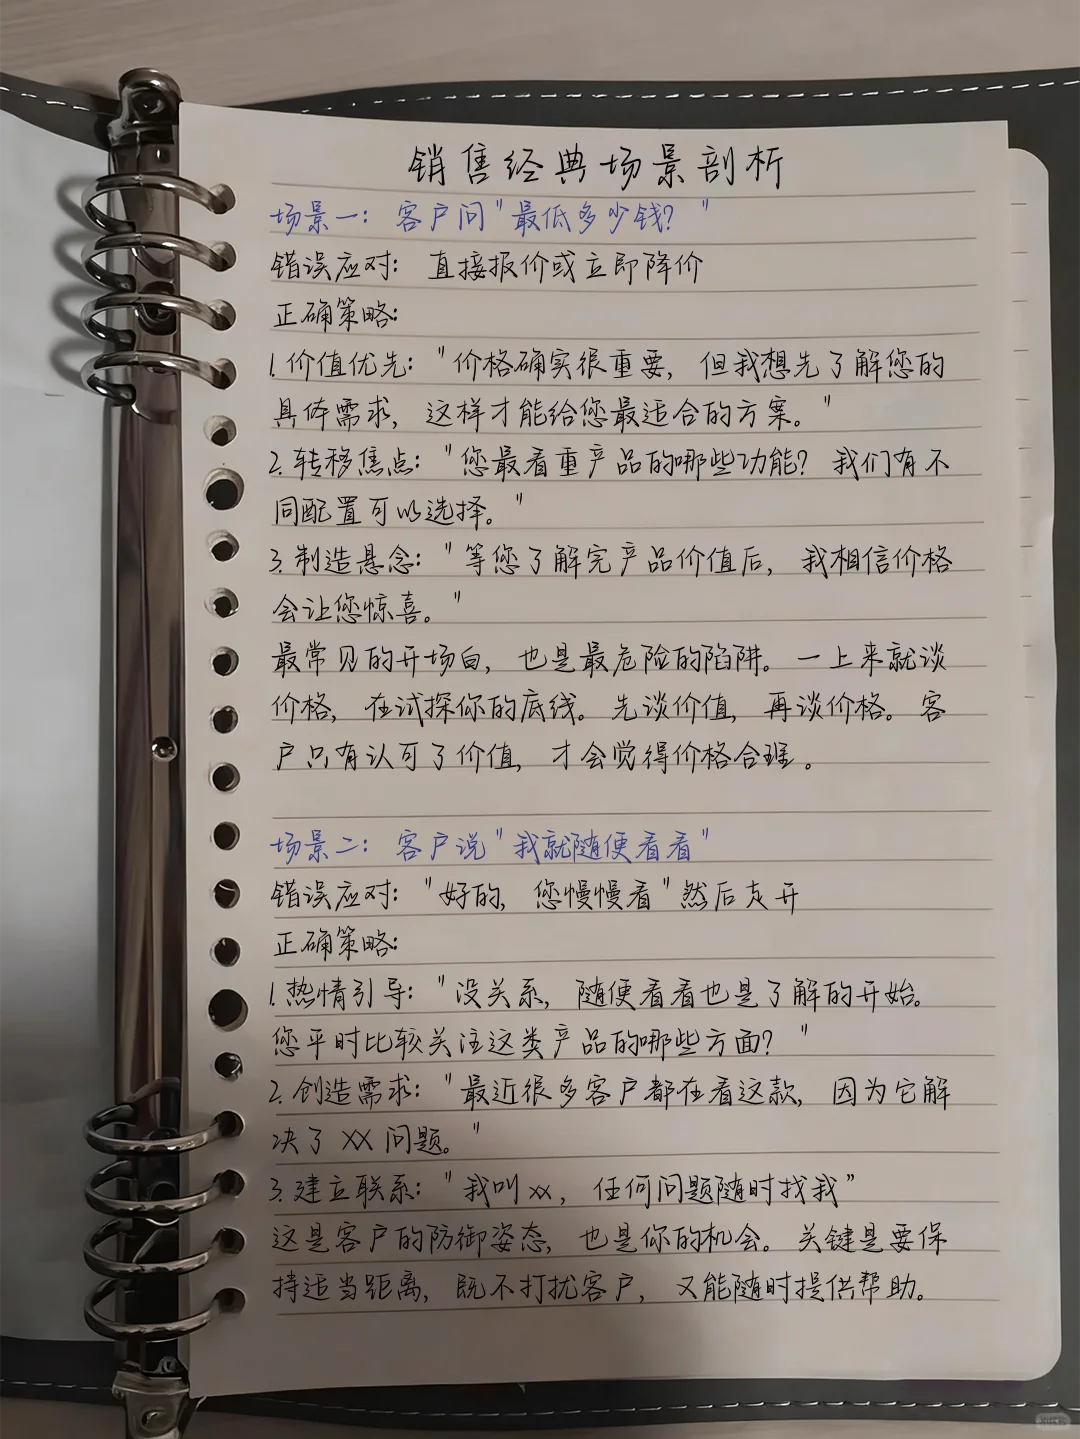 销售经典场景剖析
场景一：客户问"最低多少钱？"
错误应对：直接报价或立即降价
正确策略：
1.价值优先："价格确实很重要，但我想先了解您的
具体需求，这样才能给您最适合的方案。"
2.转移焦点："您最看重产品的哪些功能？我们有不
同配置可以选择。"
3.制造悬念："等您了解完产品价值后，我相信价格
会让您惊喜。"
最常见的开场白，也是最危险的陷阱。一上来就谈
价格，在试探你的底线。先谈价值，再谈价格。客
户只有认可了价值，才会觉得价格合理。
场景二：客户说"我就随便看看"
错误应对："好的，您慢慢看"然后走开
正确策略：
1.热情引导："没关系，随便看看也是了解的开始。
您平时比较关注这类产品的哪些方面？"
2.创造需求："最近很多客户都在看这款，因为它解
决了XX问题。"
3.建立联系："我叫xx，任何问题随时找我”
这是客户的防御姿态，也是你的机会。关键是要保
持适当距离，既不打扰客户，又能随时提供帮助。